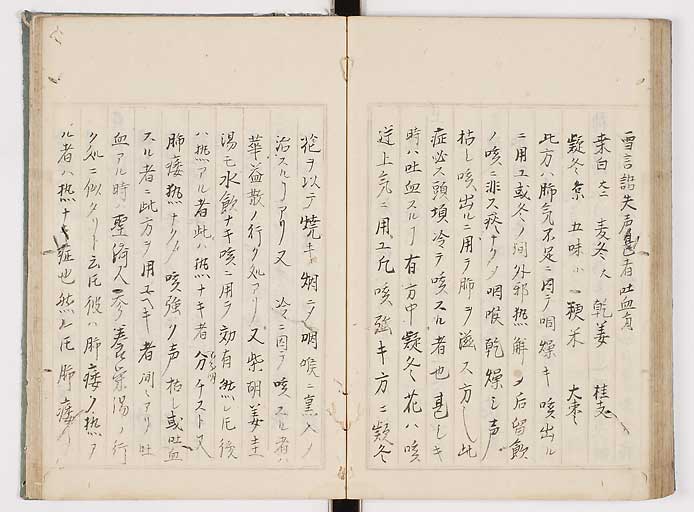 言語失声者吐血有
桑白 大 麦冬 乾姜 桂支
欵冬 五味 小 粳米 大棗
此方ハ肺気不足ニ因テ咽燥キ咳出ル
ニ用ユ或冬ノ間外邪熱解ノ后留飲
ノ咳ニ非ス痰ナク咽喉乾燥シ声
枯レ咳出ルニ用ヲ肺ヲ滋ス方シ此
症必ス頭項冷テ咳スル者也甚シキ
時ハ吐血スル 有方中欵冬花ハ咳
逆上気ニ用ユ凡咳強キ方ニ欵冬
花ヲ以テ焼キ烟ニテ咽喉ニ熏
治スル アリ又冷ニ因テ咳スル者ハ
華蓋散ノ行ク処アリ又柴胡姜圭
湯モ水飲ナキ咳ニ用ヲ効有然レ 后
ハ熱アル者此ハ熱ナキ者分ケスト又
肺痿熱ナク 咳強ク声枯レ或吐血
スル者ニ此方ヲ用ユヘキ者間ニアリ吐
血アル時ハ聖済人参養栄湯ノ行
ク処ニ似タリト云 彼ハ肺痿ノ熱ア
ル者ハ熱ナキ症也然レ 肺痿